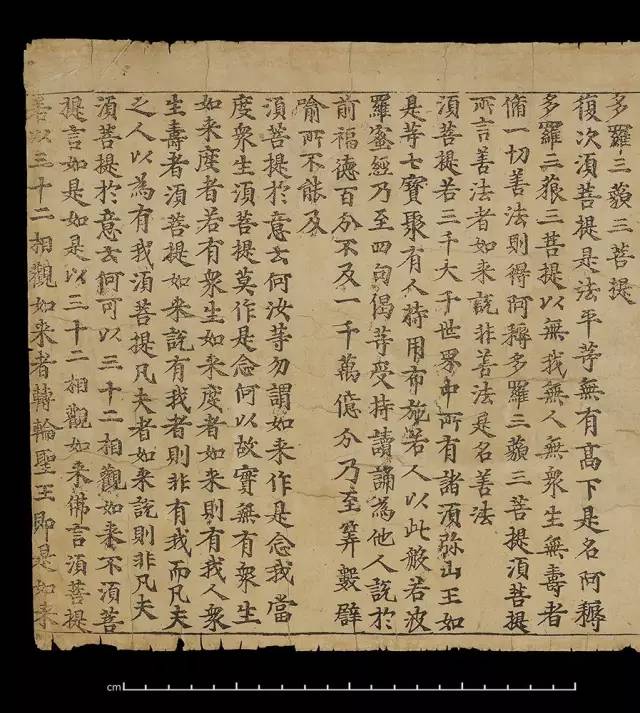 多羅三藐三菩提
復次須菩提是法平等無有高下是名阿耨
多羅三藐三菩提以無我無人無衆生無壽者
脩一切善法則得阿耨多羅三藐三菩提須菩提
所言善法者如来說非善法是名善法
須菩提若三千大千世界中所有諸須弥山王如
是等七寶聚有人持用布施若人以此般若波
羅蜜經乃至四句偈等受持讀誦為他人說於
前福德百分不及一千萬億分乃至筭數譬
喻所不能及
須菩提於意云何汝等勿謂如来作是念我當
度衆生須菩提莫作是念何以故實無有衆生
如来度者若有衆生如来度者如来則有我人衆
生壽者須菩提如来說有我者則非有我而凡夫
之人以為有我須菩提凡夫者如来說則非凡夫
須菩提於意云何可以三十二相觀如来不須菩
提言如是如是以三十二相觀如来佛言須菩提
若以三十二相觀如来者轉輪聖王即是如来
cm